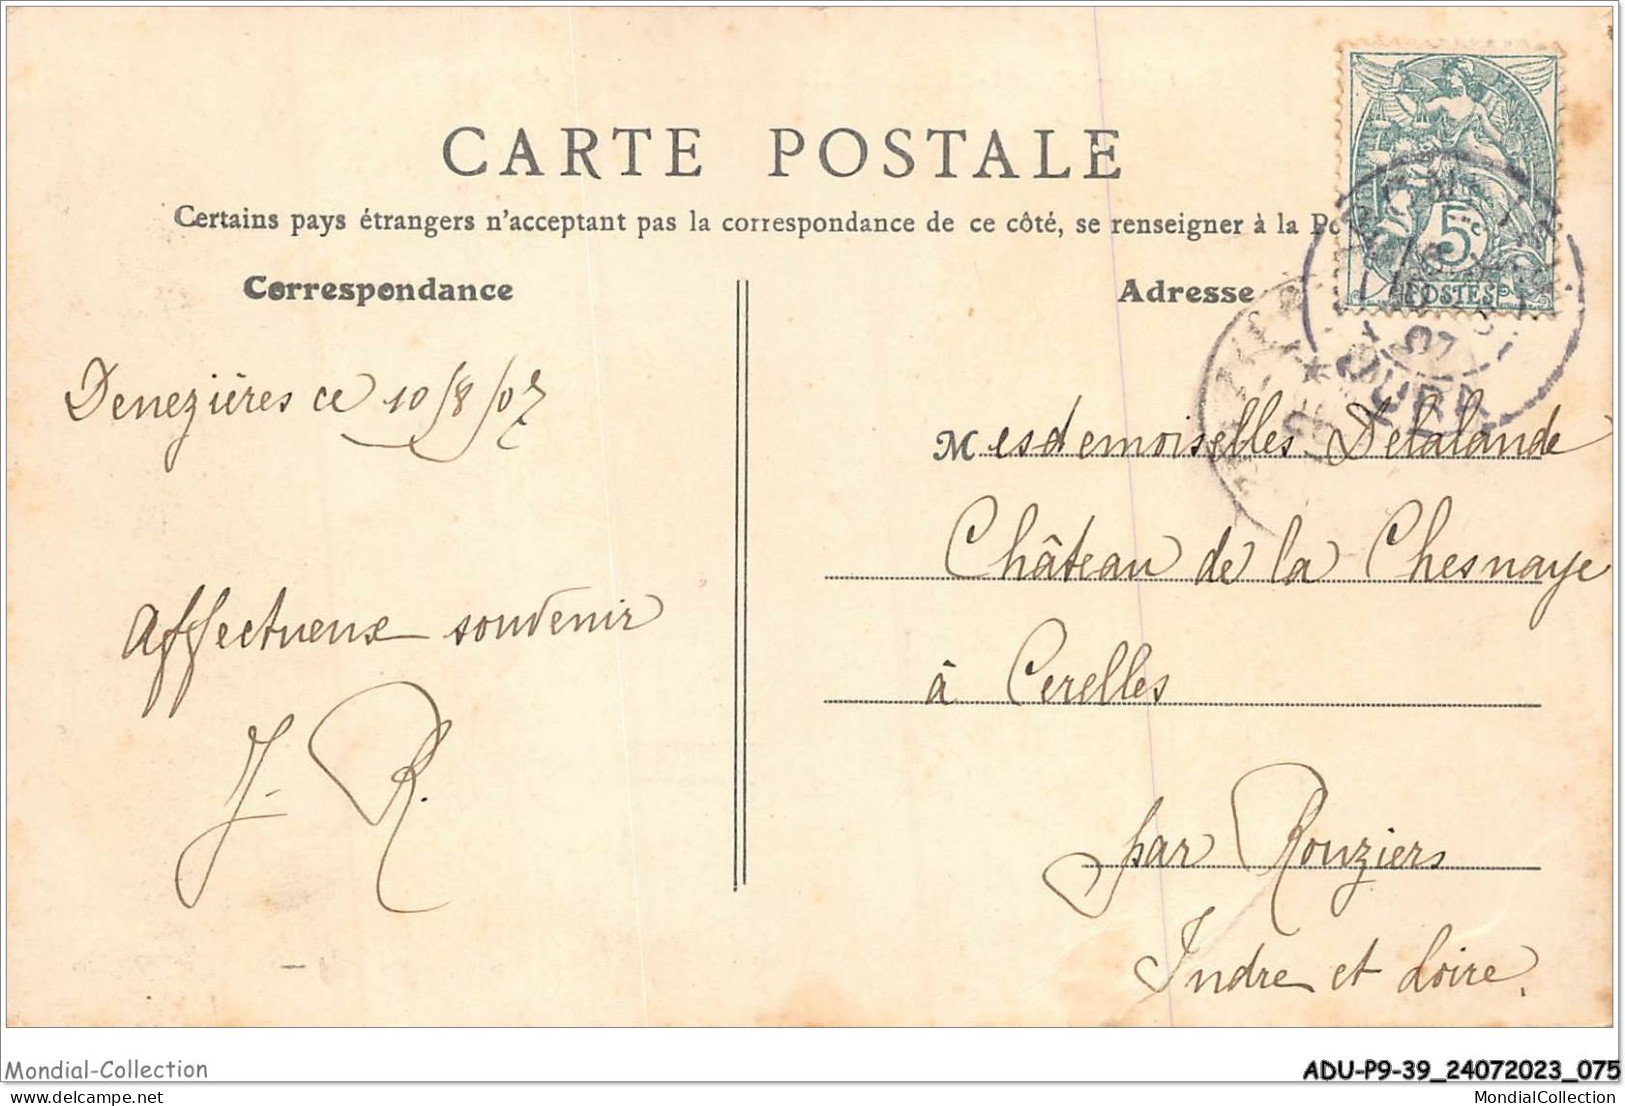 CARTE POSTALE
Certains pays étrangers n'acceptant pas la correspondance de ce côté, se renseigner à la
Correspondance
Adresse
5c
POSTES
JURA
Denezières ce 10/8/07
Affectueux souvenir
J. R.
Mesdemoiselles Delalande
Château de la Chesnaye
à Cerelles
par Rouziers
Indre et Loire.
Mondial-Collection
ADU-P9-39_24072023_075
delcampe.net
MondialCollection